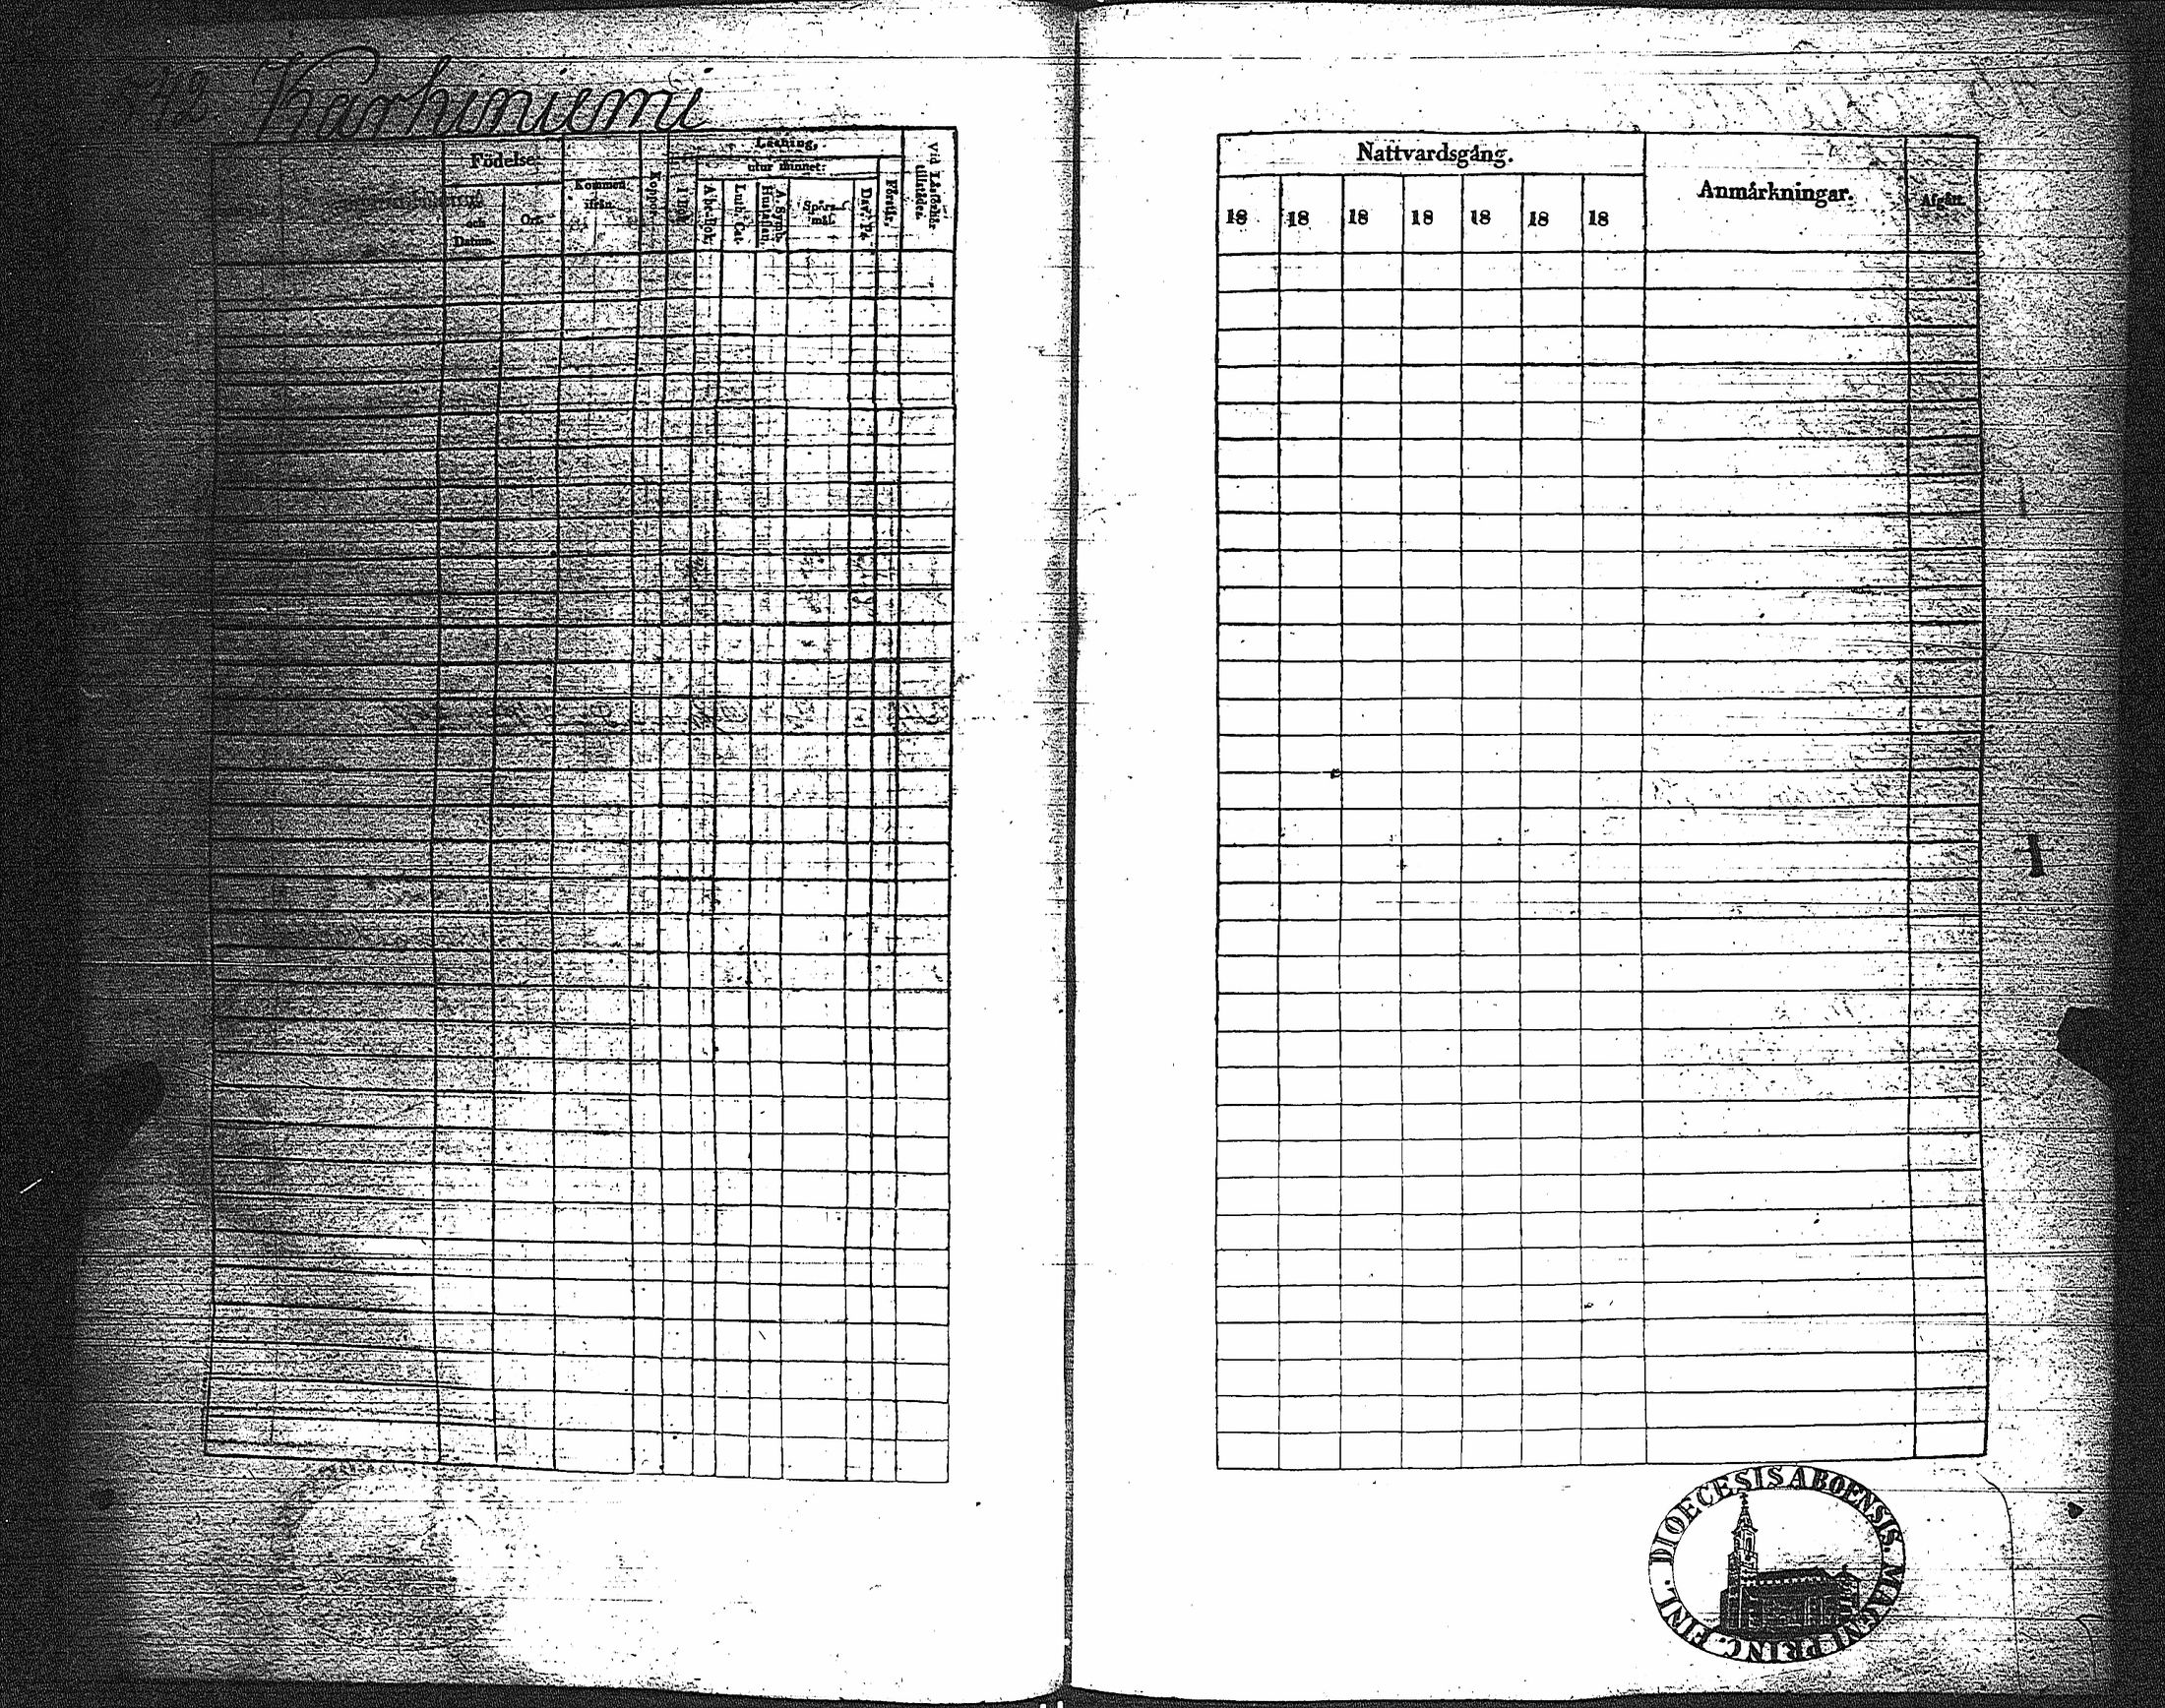 742. Karhuniemi
Födelse-
och
Datum.
Ort.
Kommen
ifrån.
Koppor.
Läsning,
utur minnet:
A-b-c-bok.
Luth. Cat.
A. Symb.
Hustaflan.
Spörs-
mål.
Dav. Ps.
Förstår.
Vid Läsförhör
tillstädes.
Nattvardsgång.
18 18 18 18 18 18 18
Anmärkningar.
Afgått.
DIOECESIS ABOENSIS. MAGNI PRINC. FINL.